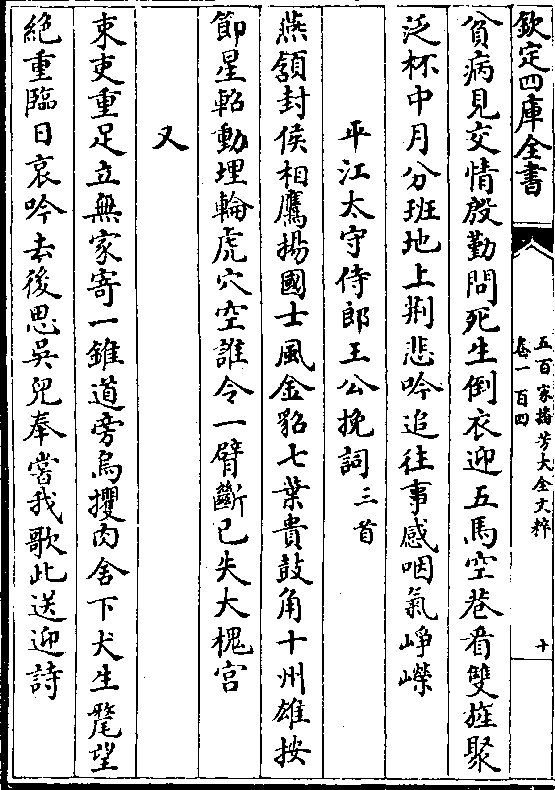 欽定四庫全書
五百家播芳大全文粹
卷一百四
十
貧病見交情殷勤問死生倒衣迎五馬空巷看雙旌聚
泛杯中月分班地上荆悲吟追往事感咽氣崢嶸
平江太守侍郎王公挽詞三首
燕頷封侯相鷹揚國士風金貂七葉貴鼓角十州雄按
節星軺動埋輪虎穴空誰令一臂斷已失大槐宫
又
束吏重足立無家寄一錐道旁烏攫肉舍下犬生氂望
絶重臨日哀吟去後思吳兒奉嘗我歌此送迎詩